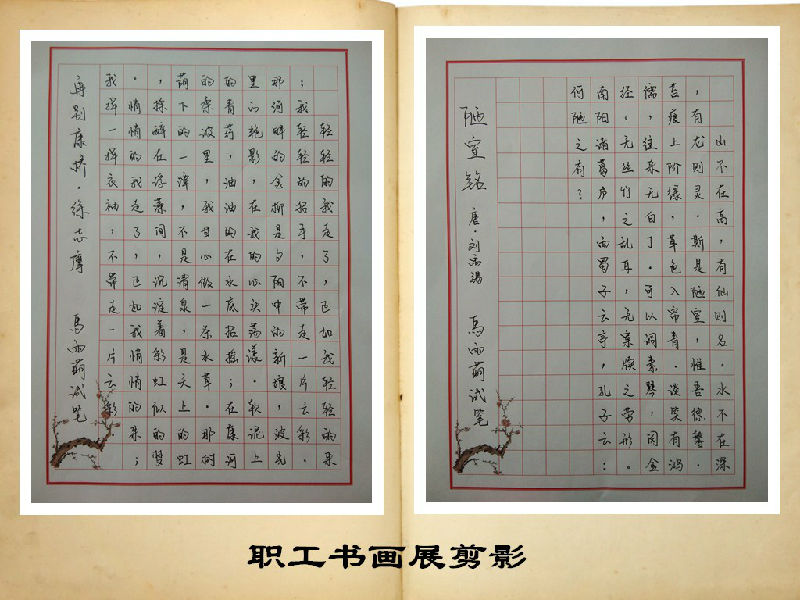 轻轻的我走了，正如我轻轻的来
；我轻轻的招手，不带走一片云彩．
那河畔的金柳是夕阳中的新娘，波光
里的艳影，在我的心头荡漾．软泥上
的青荇，油油的在水底招摇；在康河
的柔波里，我甘心做一条水草。那
荫下的一潭，不是清泉，是天上的虹
，揉碎在浮藻间，沉淀着彩虹似的梦
。悄悄的我走了，正如我悄悄的来；
我挥一挥衣袖；不带走一片云彩．
再别康桥．徐志摩 马雨萌试笔
山不在高，有仙则名．水不在深
，有龙则灵．斯是陋室，惟吾德馨．
苔痕上阶绿．草色入帘青．谈笑有鸿
儒，往来无白丁。可以调素琴．阅金
经．无丝竹之乱耳，无案牍之劳形。
南阳诸葛庐，西蜀子云亭，孔子云：
何陋之有？
陋室铭 唐．刘禹锡 马雨萌试笔
职工书画展剪影